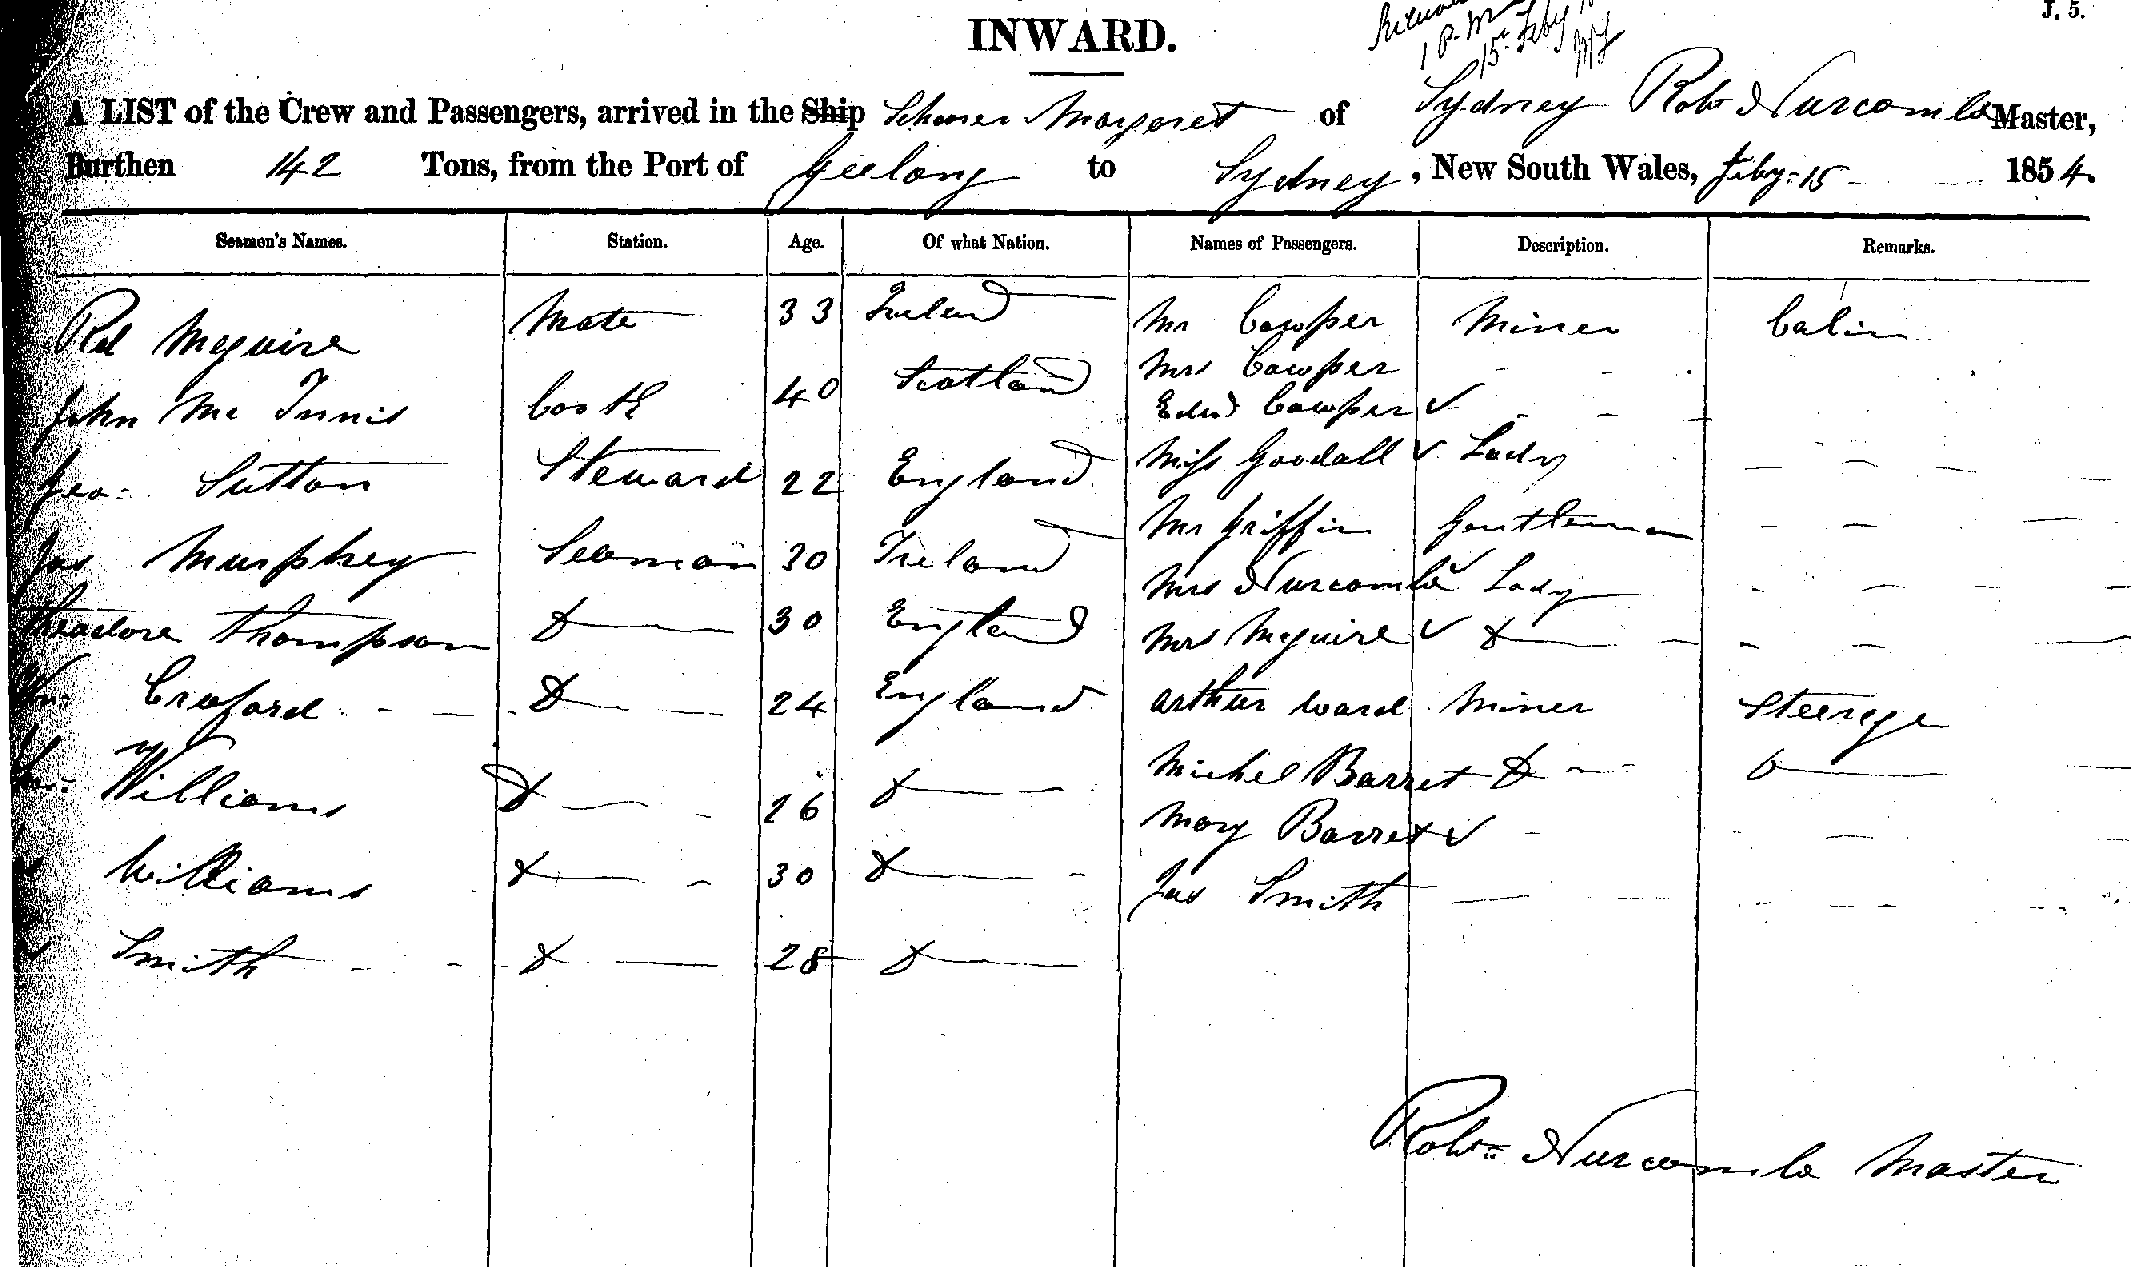 INWARD.
J. 5.
1 P.M
15 Feby
A LIST of the Crew and Passengers, arrived in the Ship Schoner Margaret of Sydney Robt Nurcombe Master,
Burthen 142 Tons, from the Port of Geelong to Sydney, New South Wales, Feby 15 1854.
Seamen's Names. Station. Age. Of what Nation. Names of Passengers. Description. Remarks.
Mcguire Mate 33 Ireland Mr Cowper Miner Cabin
Mrs Cowper
John Mc Innis Cook 40 Scotland Edwd Cowper ✓
Geo Sutton Steward 22 England Miss Goodall ✓ Lady
Jas Murphey Seaman 30 Ireland Mr Griffin Gentleman
Mrs Nurcombe ✓ Lady
Theadore Thompson Do 30 England Mrs Mcguire ✓ Do
Craford Do 24 England Arthur Ward Miner Steerage
Williams Do 26 Do Michel Barret Do Do
Mary Barret ✓
Williams Do 30 Do Jas Smith
Smith Do 28 Do
Robt Nurcombe Master